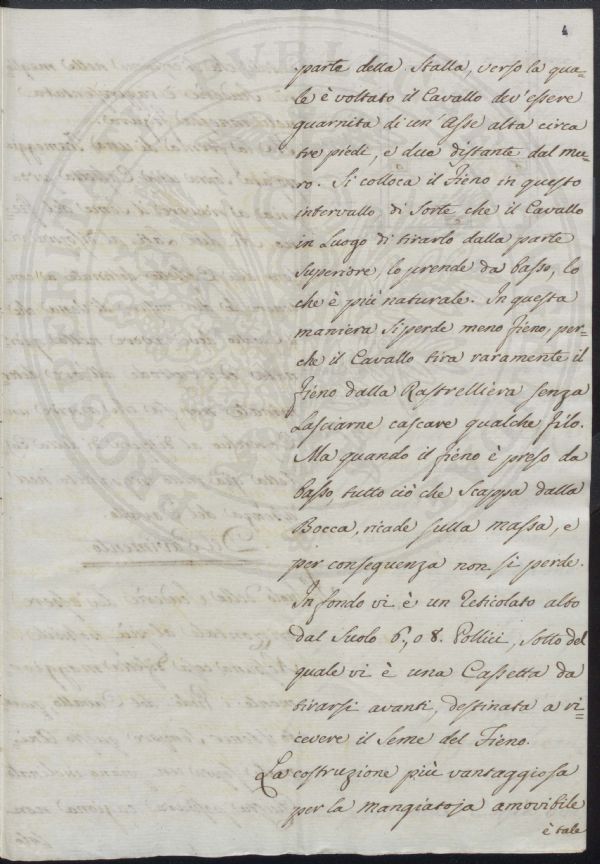 4
parte della Stalla, verso la qua=
le è voltato il Cavallo dev'essere
guarnita di un'Asse alta circa
tre piedi, e due distante dal mu=
ro. Si colloca il Fieno in questo
intervallo di Sorte che il Cavallo
in Luogo di tirarlo dalla parte
Superiore, lo prende da basso, lo
che è più naturale. In questa
maniera Si perde meno fieno, per=
che il Cavallo tira raramente il
Fieno dalla Rastrelliera senza
Lasciarne cascare qualche filo.
Ma quando il fieno è preso da
basso, tutto ciò che Scappa dalla
Bocca, ricade sulla massa, e
per conseguenza non si perde.
In fondo vi è un Reticolato alto
dal Suolo 6, o 8. Pollici, sotto del
quale vi è una Cassetta da
tirarsi avanti, destinata a ri=
cevere il Seme del Fieno.
La costruzione più vantaggiosa
per la mangiatoja amovibile
è tale